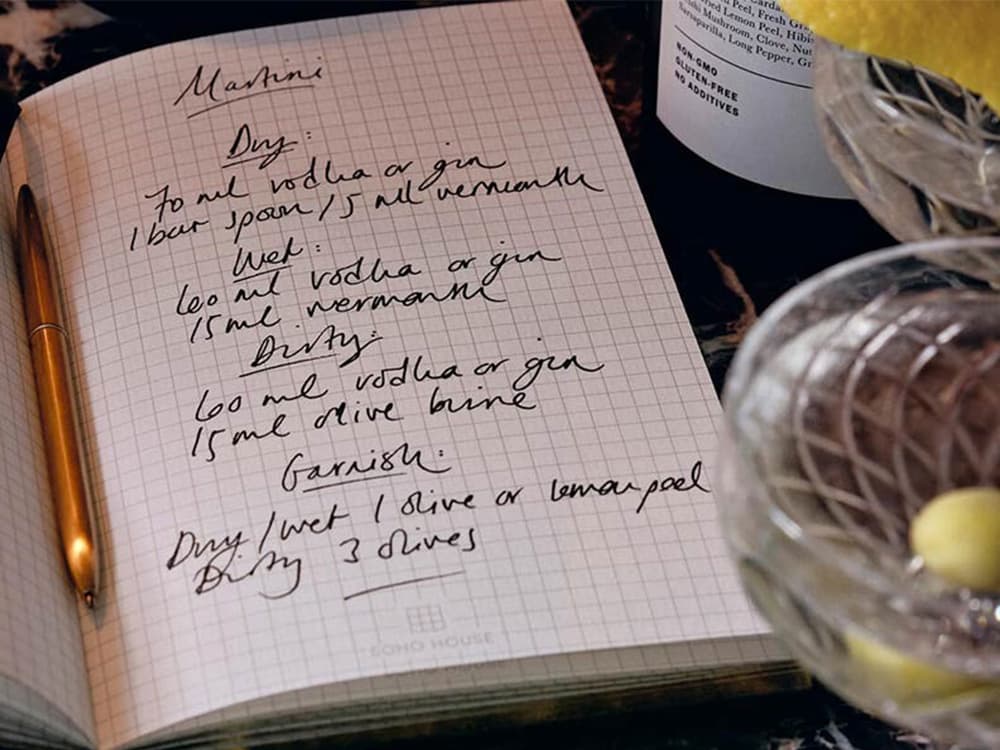 Martini
Dry:
70 ml vodka or gin
1 bar spoon / 5 ml vermouth
Wet:
60 ml vodka or gin
15ml vermouth
Dirty:
60 ml vodka or gin
15ml olive brine
Garnish:
Dry / wet 1 olive or lemon peel
Dirty 3 olives
SOHO HOUSE
Peel, Fresh
Lemon Peel,
Mushroom, Clove,
Sarsaparilla, Long Pepper,
NON-GMO
GLUTEN-FREE
NO ADDITIVES